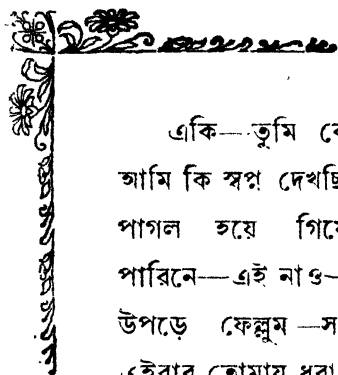 একি—তুমি
আমি কি স্বপ্ন
পাগল হয়ে
পারিনে—এই নাও—
উপড়ে ফেল্লুম —
এইবার তোমায় ধরা